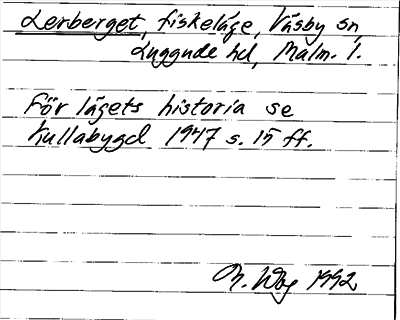 Lerberget, fiskeläge, Väsby sn
Luggude hd, Malm. l.
För lägets historia se
Kullabygd 1947 s. 15 ff.
1992